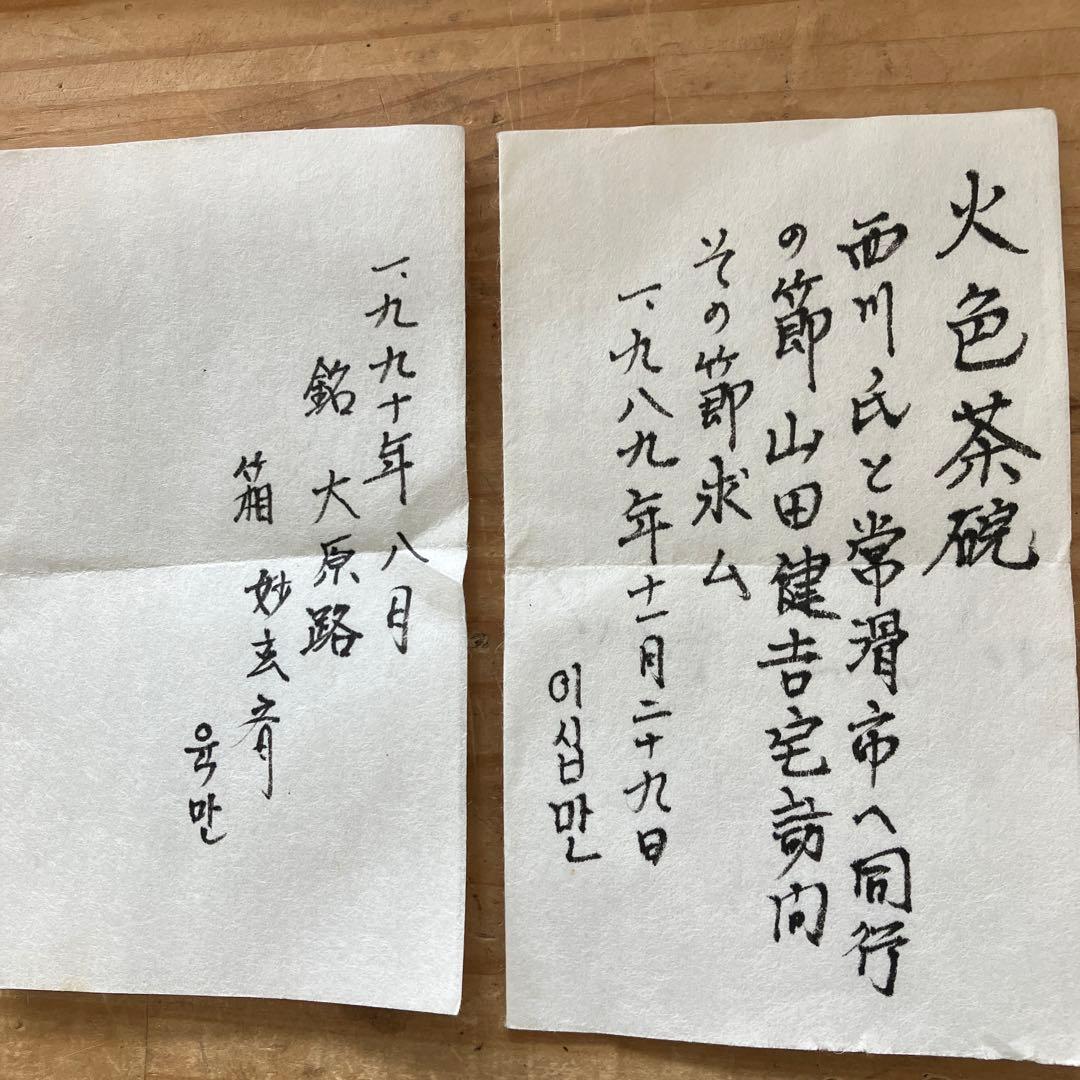 火色茶碗
西川氏と常滑市へ同行
の節 山田健吉宅訪问
その節求ム
一、九八九年十一月二十九日
이십만
一、九九十年八月
銘 大原路
箱 妙玄斉
육만